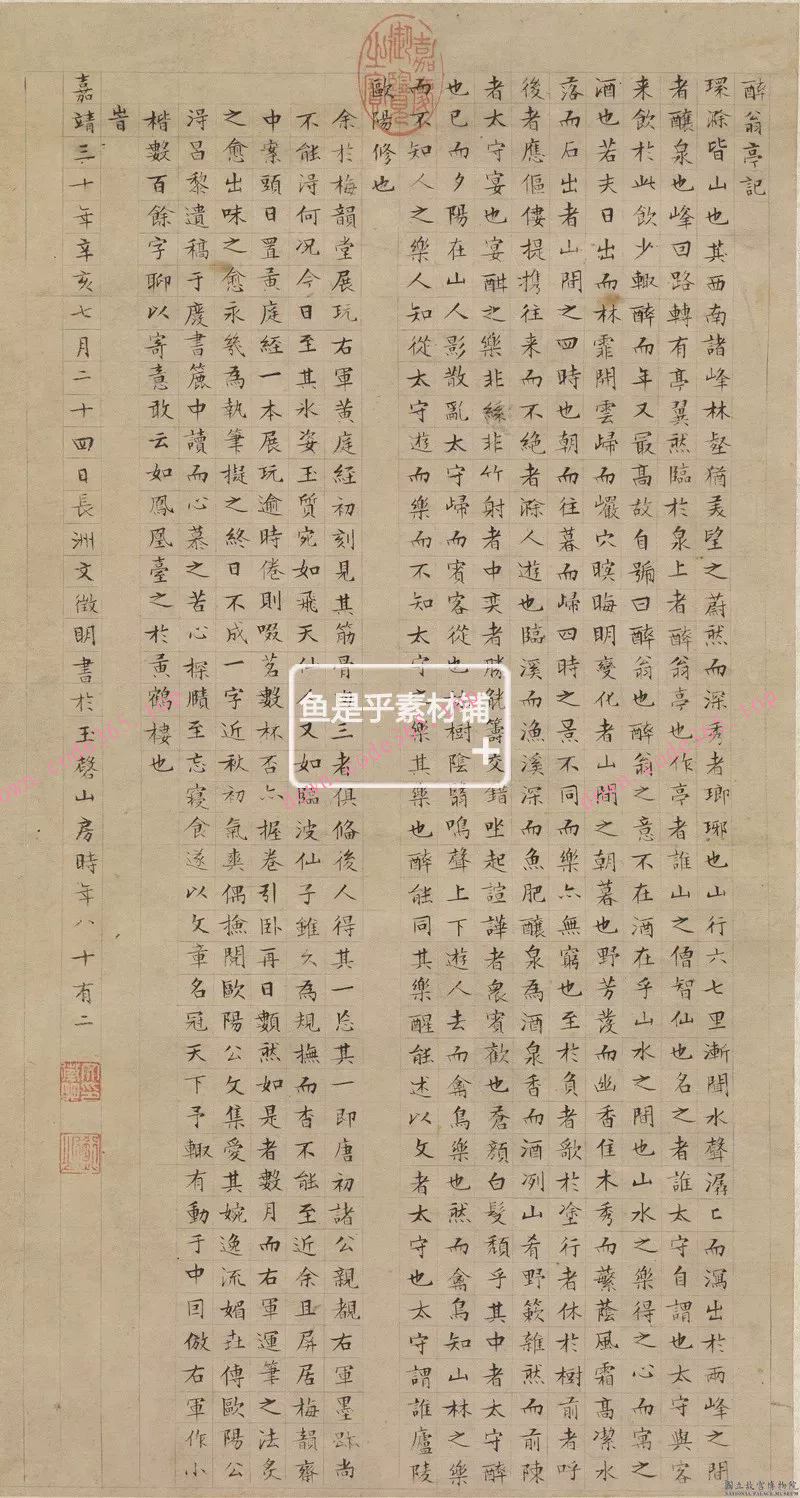 醉翁亭記
環滁皆山也其西南諸峰林壑猶美望之蔚然而深秀者瑯琊也山行六七里漸聞水聲潺〻而瀉出於兩峰之間
者釀泉也峰回路轉有亭翼然臨於泉上者醉翁亭也作亭者誰山之僧智仙也名之者誰太守自謂也太守與客
来飲於此飲少輒醉而年又最高故自號曰醉翁也醉翁之意不在酒在乎山水之間也山水之樂得之心而寓之
酒也若夫日出而林霏開雲歸而巖穴暝晦明變化者山間之朝暮也野芳發而幽香佳木秀而蘩蔭風霜高潔水
落而石出者山間之四時也朝而往暮而歸四時之景不同而樂亦無窮也至於負者歌於塗行者休於樹前者呼
後者應傴僂提携往来而不絶者滁人遊也臨溪而漁溪深而魚肥釀泉為酒泉香而酒冽山肴野蔌雜然而前陳
者太守宴也宴酣之樂非絲非竹射者中奕者勝觥籌交錯坐起諠譁者衆賓歡也蒼顔白髮頹乎其中者太守醉
也已而夕陽在山人影散亂太守歸而賓客從也樹陰翳鳴聲上下遊人去而禽鳥樂也然而禽鳥知山林之樂
而不知人之樂人知從太守遊而樂而不知太守樂其樂也醉能同其樂醒能述以文者太守也太守謂誰廬陵
歐陽修也
余於梅韻堂展玩右軍黄庭經初刻見其筋骨三者俱俻後人得其一忘其一即唐初諸公親覩右軍墨跡尚
不能淂何况今日至其氷姿玉質宛如飛天仙又如臨波仙子雖久為規撫而杳不能至近余且屏居梅韻齋
中案頭日置黄庭經一本展玩逾時倦則啜茗數杯否亦握卷引卧再日數然如是者數月而右軍運筆之法炙
之愈出味之愈永幾為執筆擬之終日不成一字近秋初氣爽偶撿閲歐陽公文集愛其婉逸流媚昔傳歐陽公
淂昌黎遺稿于慶書簏中讀而心慕之苦心探賾至忘寝食遂以文章名冠天下予輙有動于中因倣右軍作小
楷數百餘字聊以寄意敢云如鳳凰臺之於黄鶴樓也
旹
嘉靖三十年辛亥七月二十四日長洲文徵明書於玉磬山房時年八十有二
嘉慶御覽之寶
鱼是乎素材铺
國立故宮博物院
NATIONAL PALACE MUSEUM